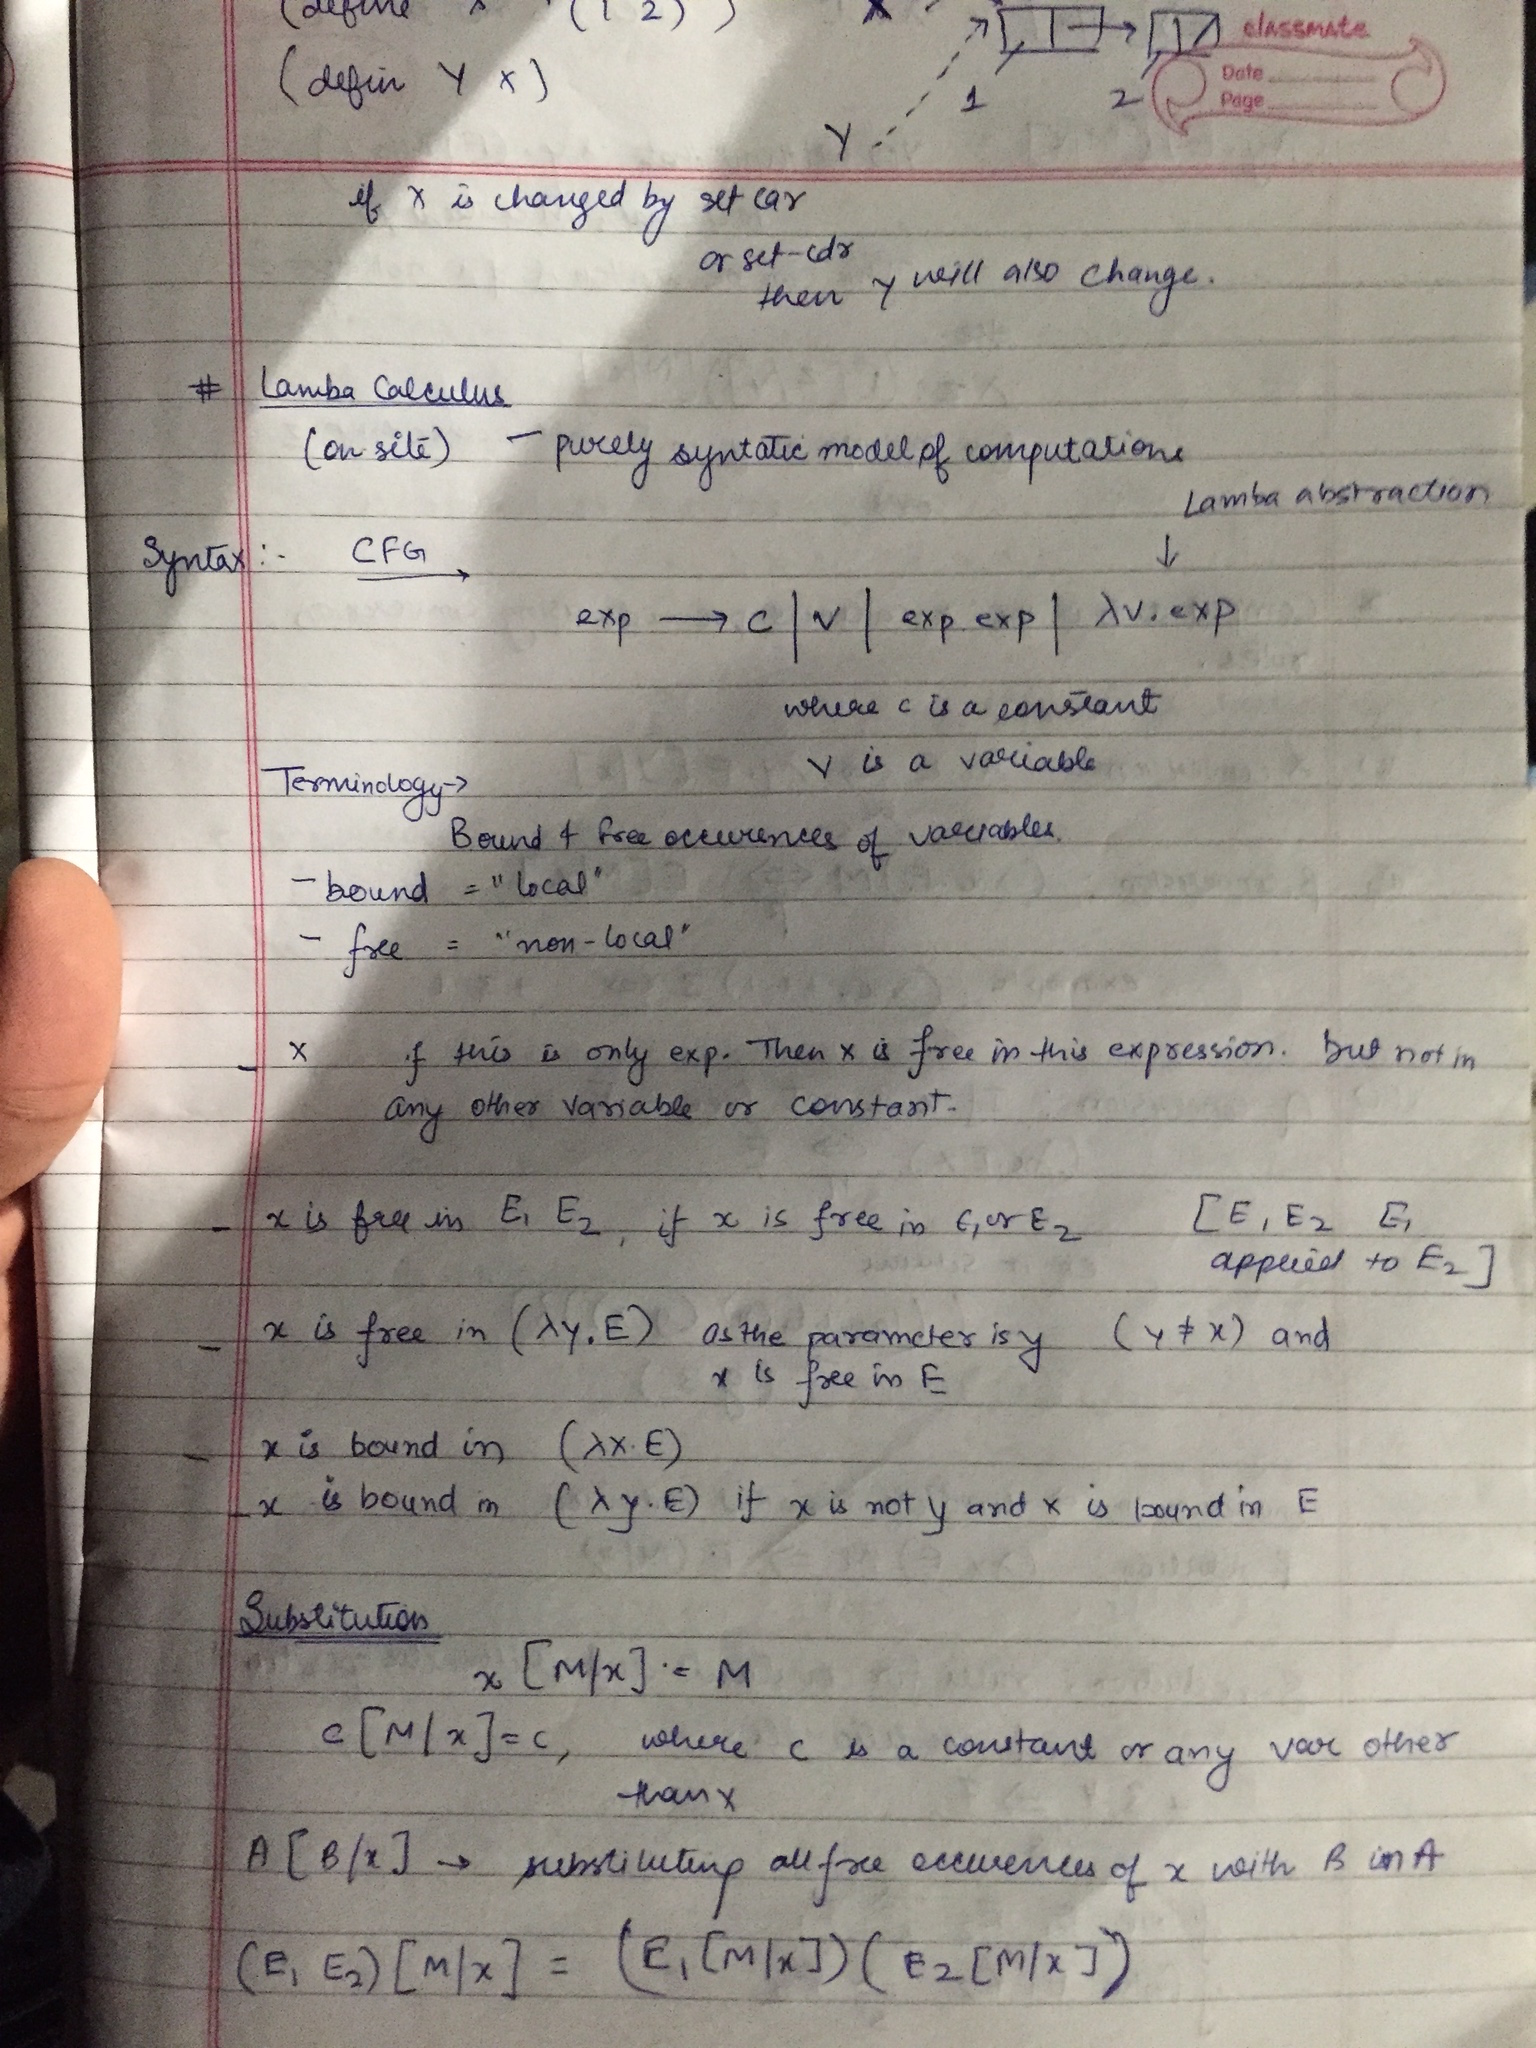 (define x '(1 2))
X
classmate
(defin Y x)
1
2
Date
Page
Y
if x is changed by set car
or set-cdr
then y will also change.
# Lamba Calculus
(on site) - purely syntatic model of computations
Lamba abstraction
↓
Syntax:- CFG →
exp → c | v | exp exp | λv. exp
where c is a constant
v is a variable
Terminology→
Bound & free occurences of variables.
- bound = "local"
- free = "non-local"
- x if this is only exp. Then x is free in this expression. but not in
any other variable or constant.
- x is free in E1 E2, if x is free in E1 or E2 [E1 E2 E1
applied to E2]
- x is free in (λy.E) as the parameter is y (y ≠ x) and
x is free in E
- x is bound in (λx.E)
- x is bound in (λy.E) if x is not y and x is bound in E
Substitution
x [M/x] = M
c [M/x] = c, where c is a constant or any var other
than x
A [B/x] → substituting all free occurences of x with B in A
(E1 E2) [M/x] = (E1 [M/x]) (E2 [M/x])